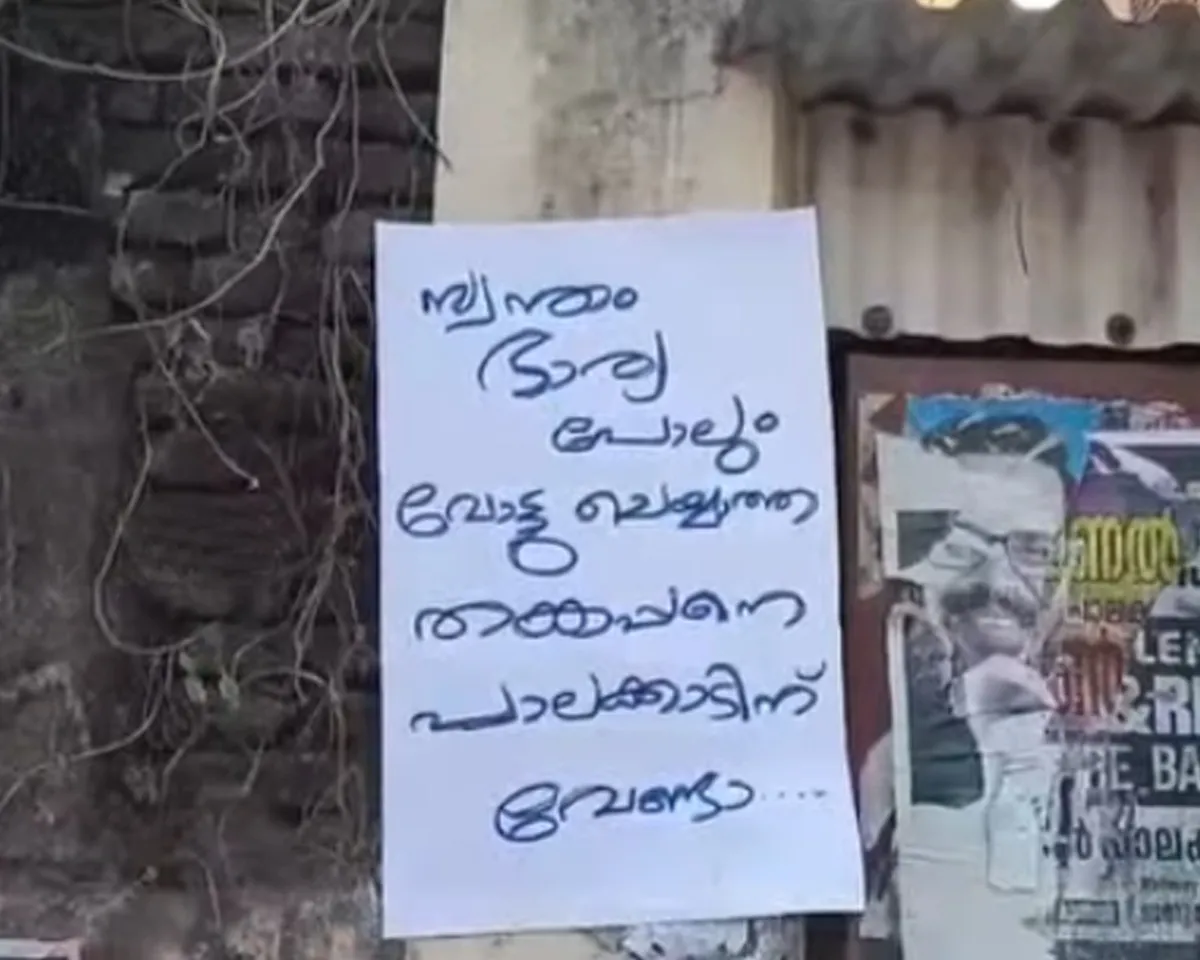 സ്വന്തം
ഭാര്യ
പോലും
വോട്ടു ചെയ്യാത്ത
തങ്കപ്പനെ
പാലക്കാടിന്
വേണ്ടാ....
LE
&R
BA